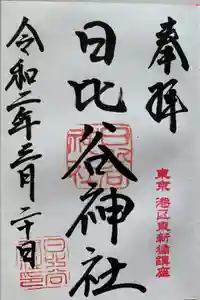 奉拝
東京 港区東新橋鎮座
日比谷神社
令和二年三月二十日